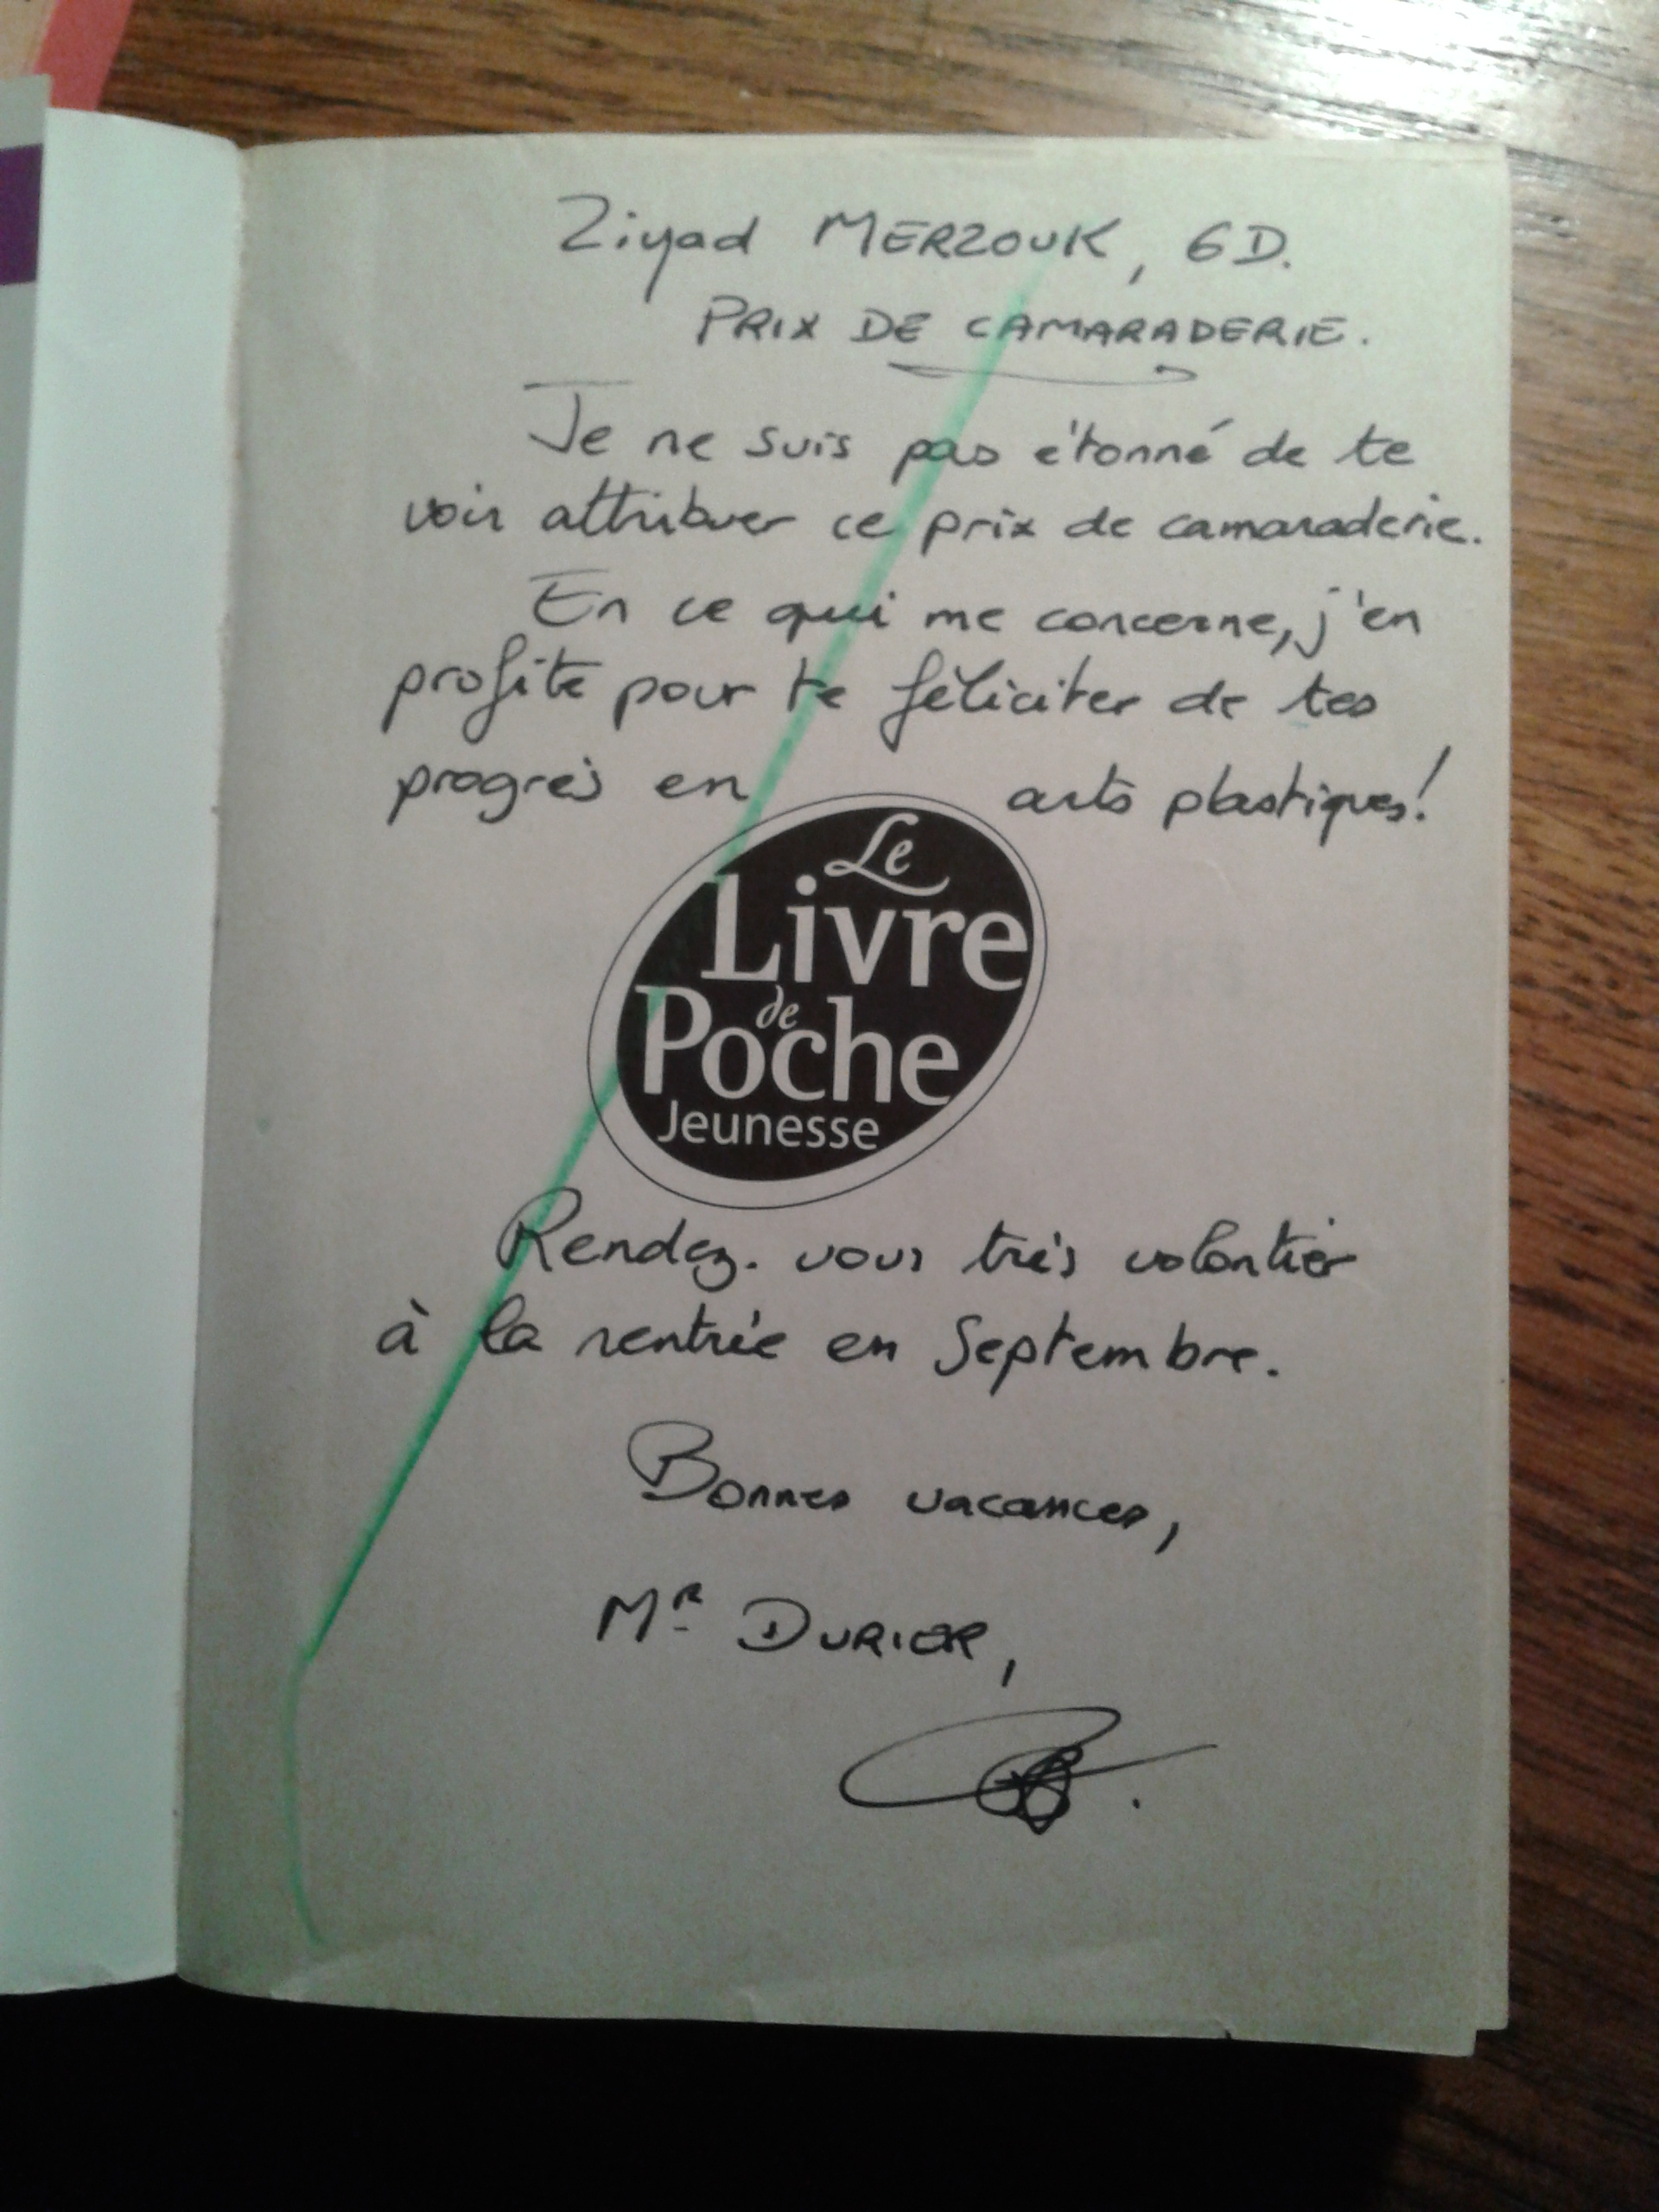 Ziyad MERZOUK, 6D.
PRIX DE CAMARADERIE.
Je ne suis pas étonné de te
voir attribuer ce prix de camaraderie.
En ce qui me concerne, j'en
profite pour te féliciter de tes
progrès en arts plastiques!
Le
Livre
de
Poche
Jeunesse
Rendez-vous très volontier
à la rentrée en Septembre.
Bonnes vacances,
Mr DURIER,